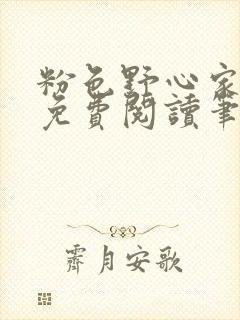 粉色野心家
免費閱讀筆
霽月安歌